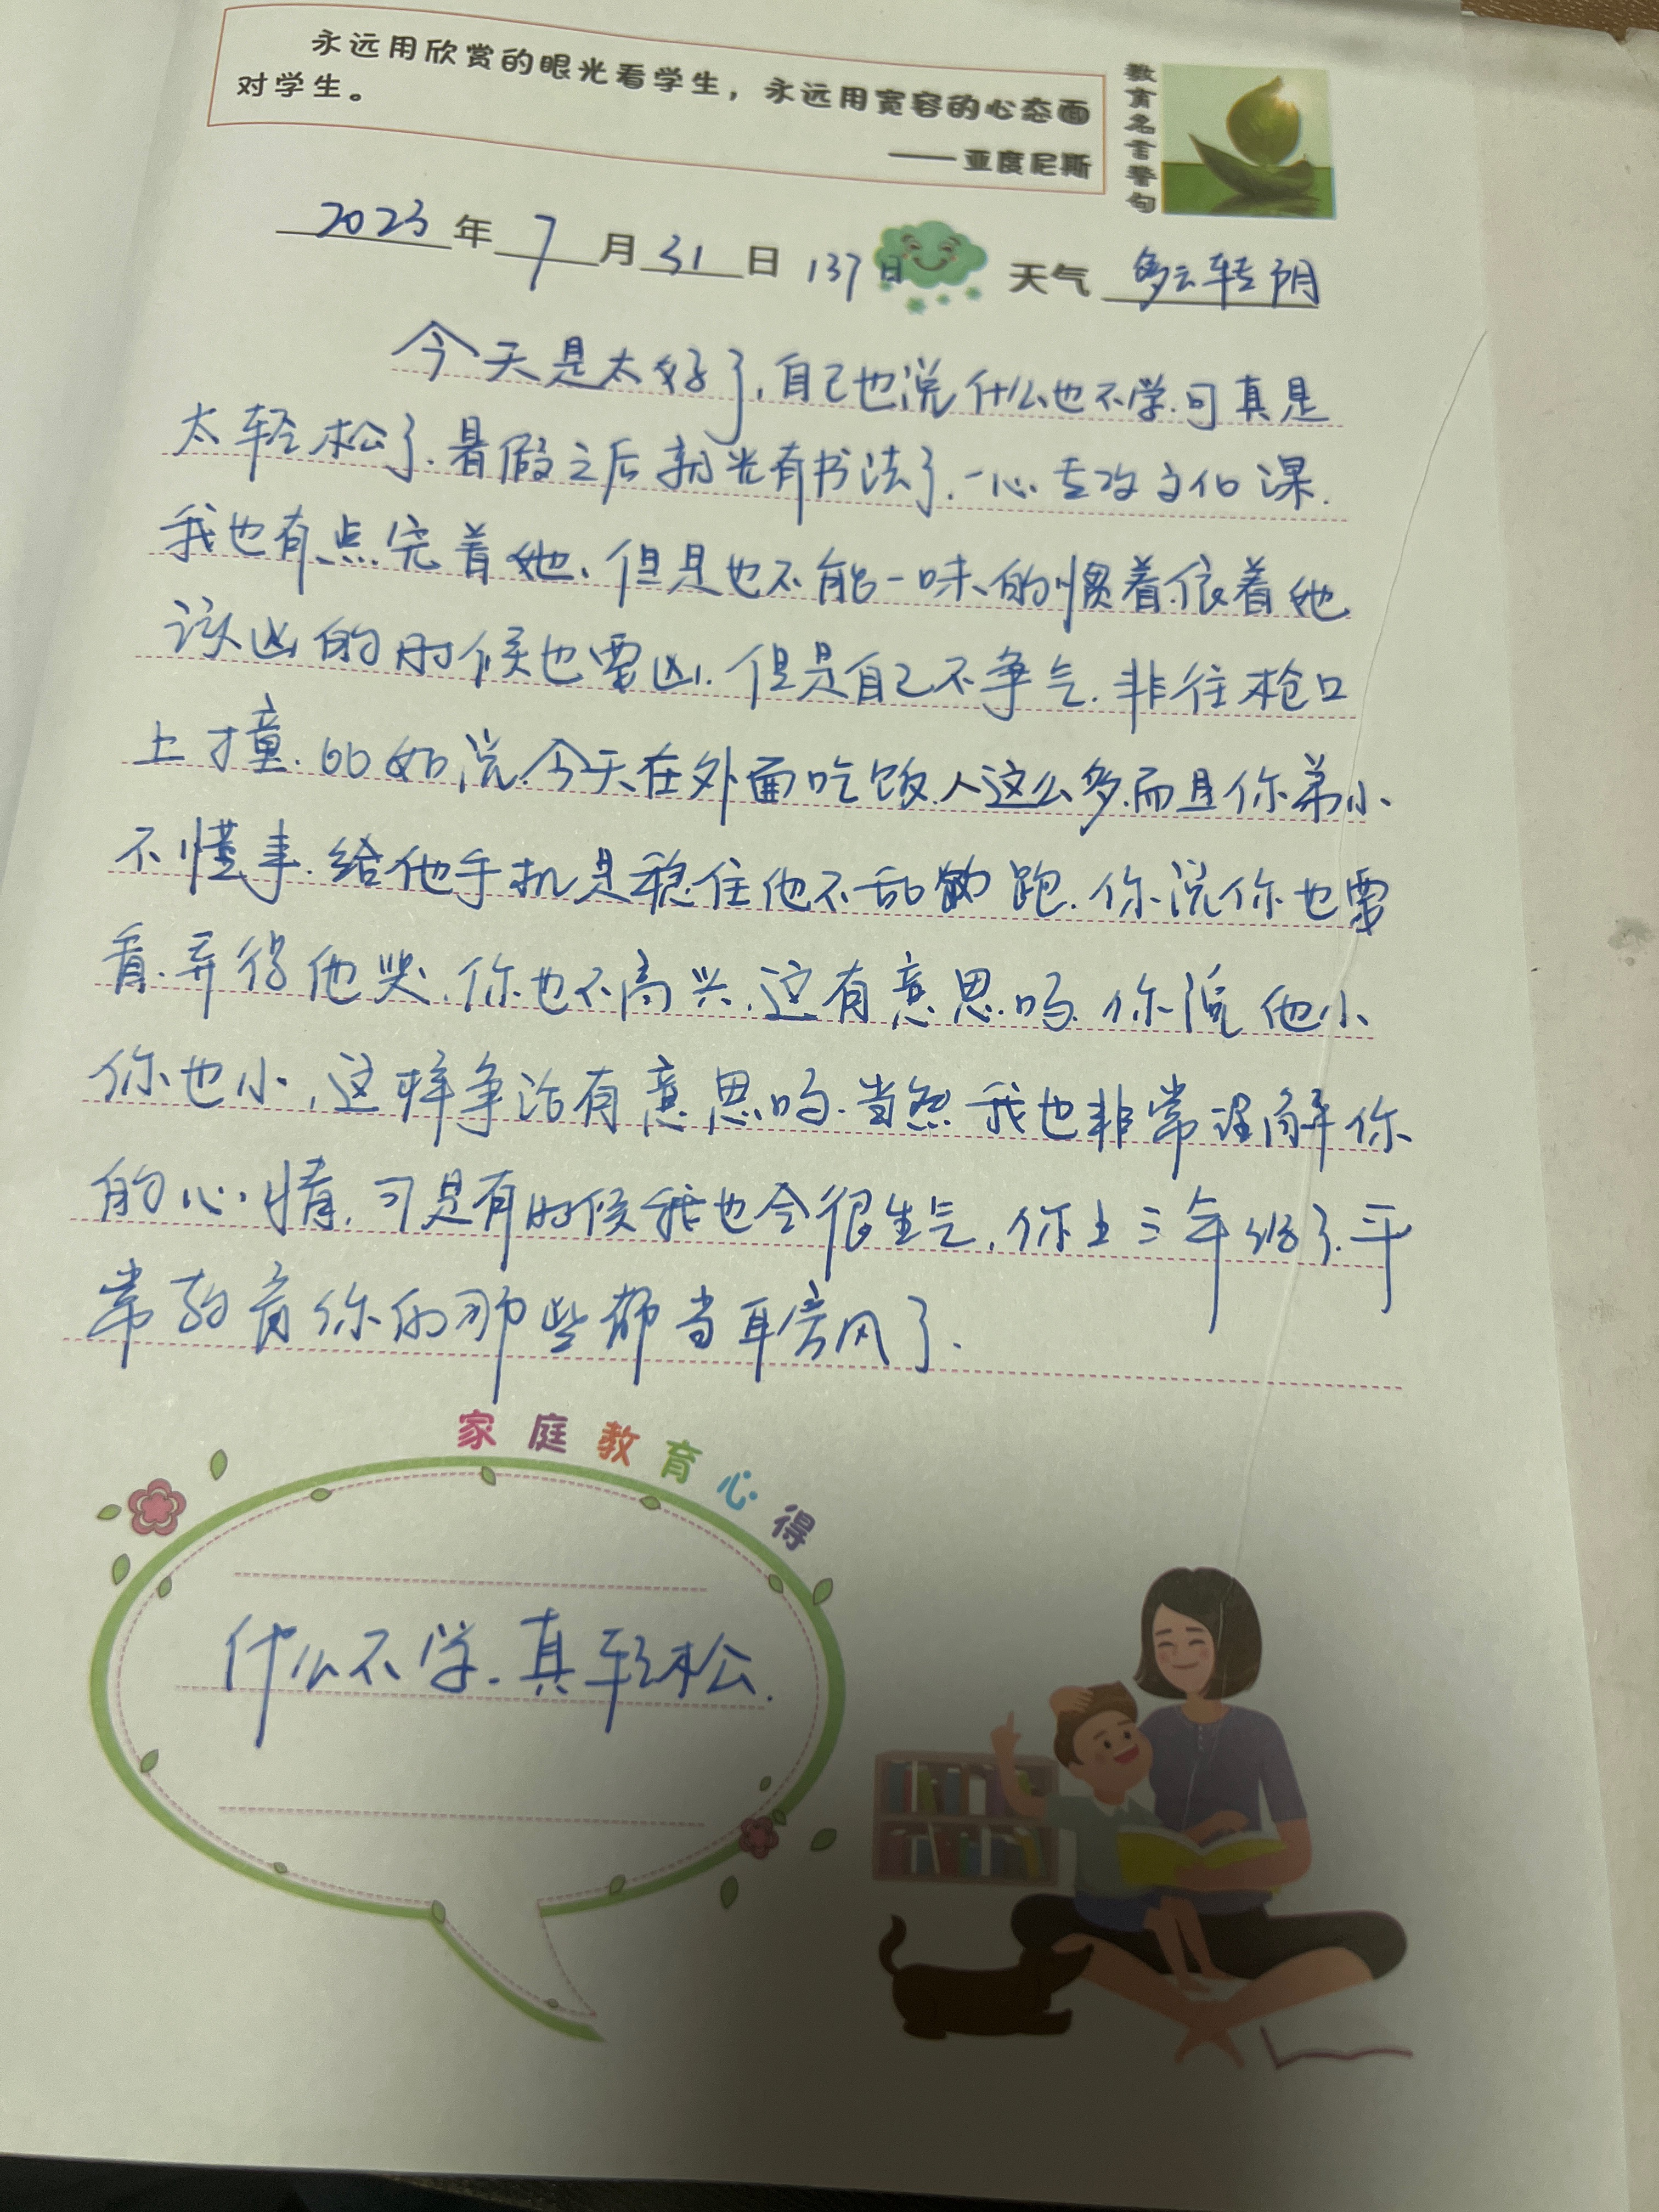 永远用欣赏的眼光看学生，永远用宽容的心态面
对学生。
——亚度尼斯
教育名言警句
2023年7月31日 137日 天气 多云转阴
今天是太好了.自己也说什么也不学.可真是
太轻松了.暑假之后就光有书法了.一心专攻文化课.
我也有点完着她、但是也不能一味的惯着.依着她
该凶的时候也要凶.但是自己不争气.非往枪口
上撞.比如说.今天在外面吃饭.人这么多.而且你弟小
不懂事.给他手机是稳住他不乱跑.你说你也要
看.弄得他哭.你也不高兴.这有意思吗.你说他小
你也小.这样争论有意思吗.当然我也非常理解你
的心情.可是有时候我也会很生气.你上三年级了.平
常教育你的那些都当耳旁风了.
家庭教育心得
什么不学.真轻松.